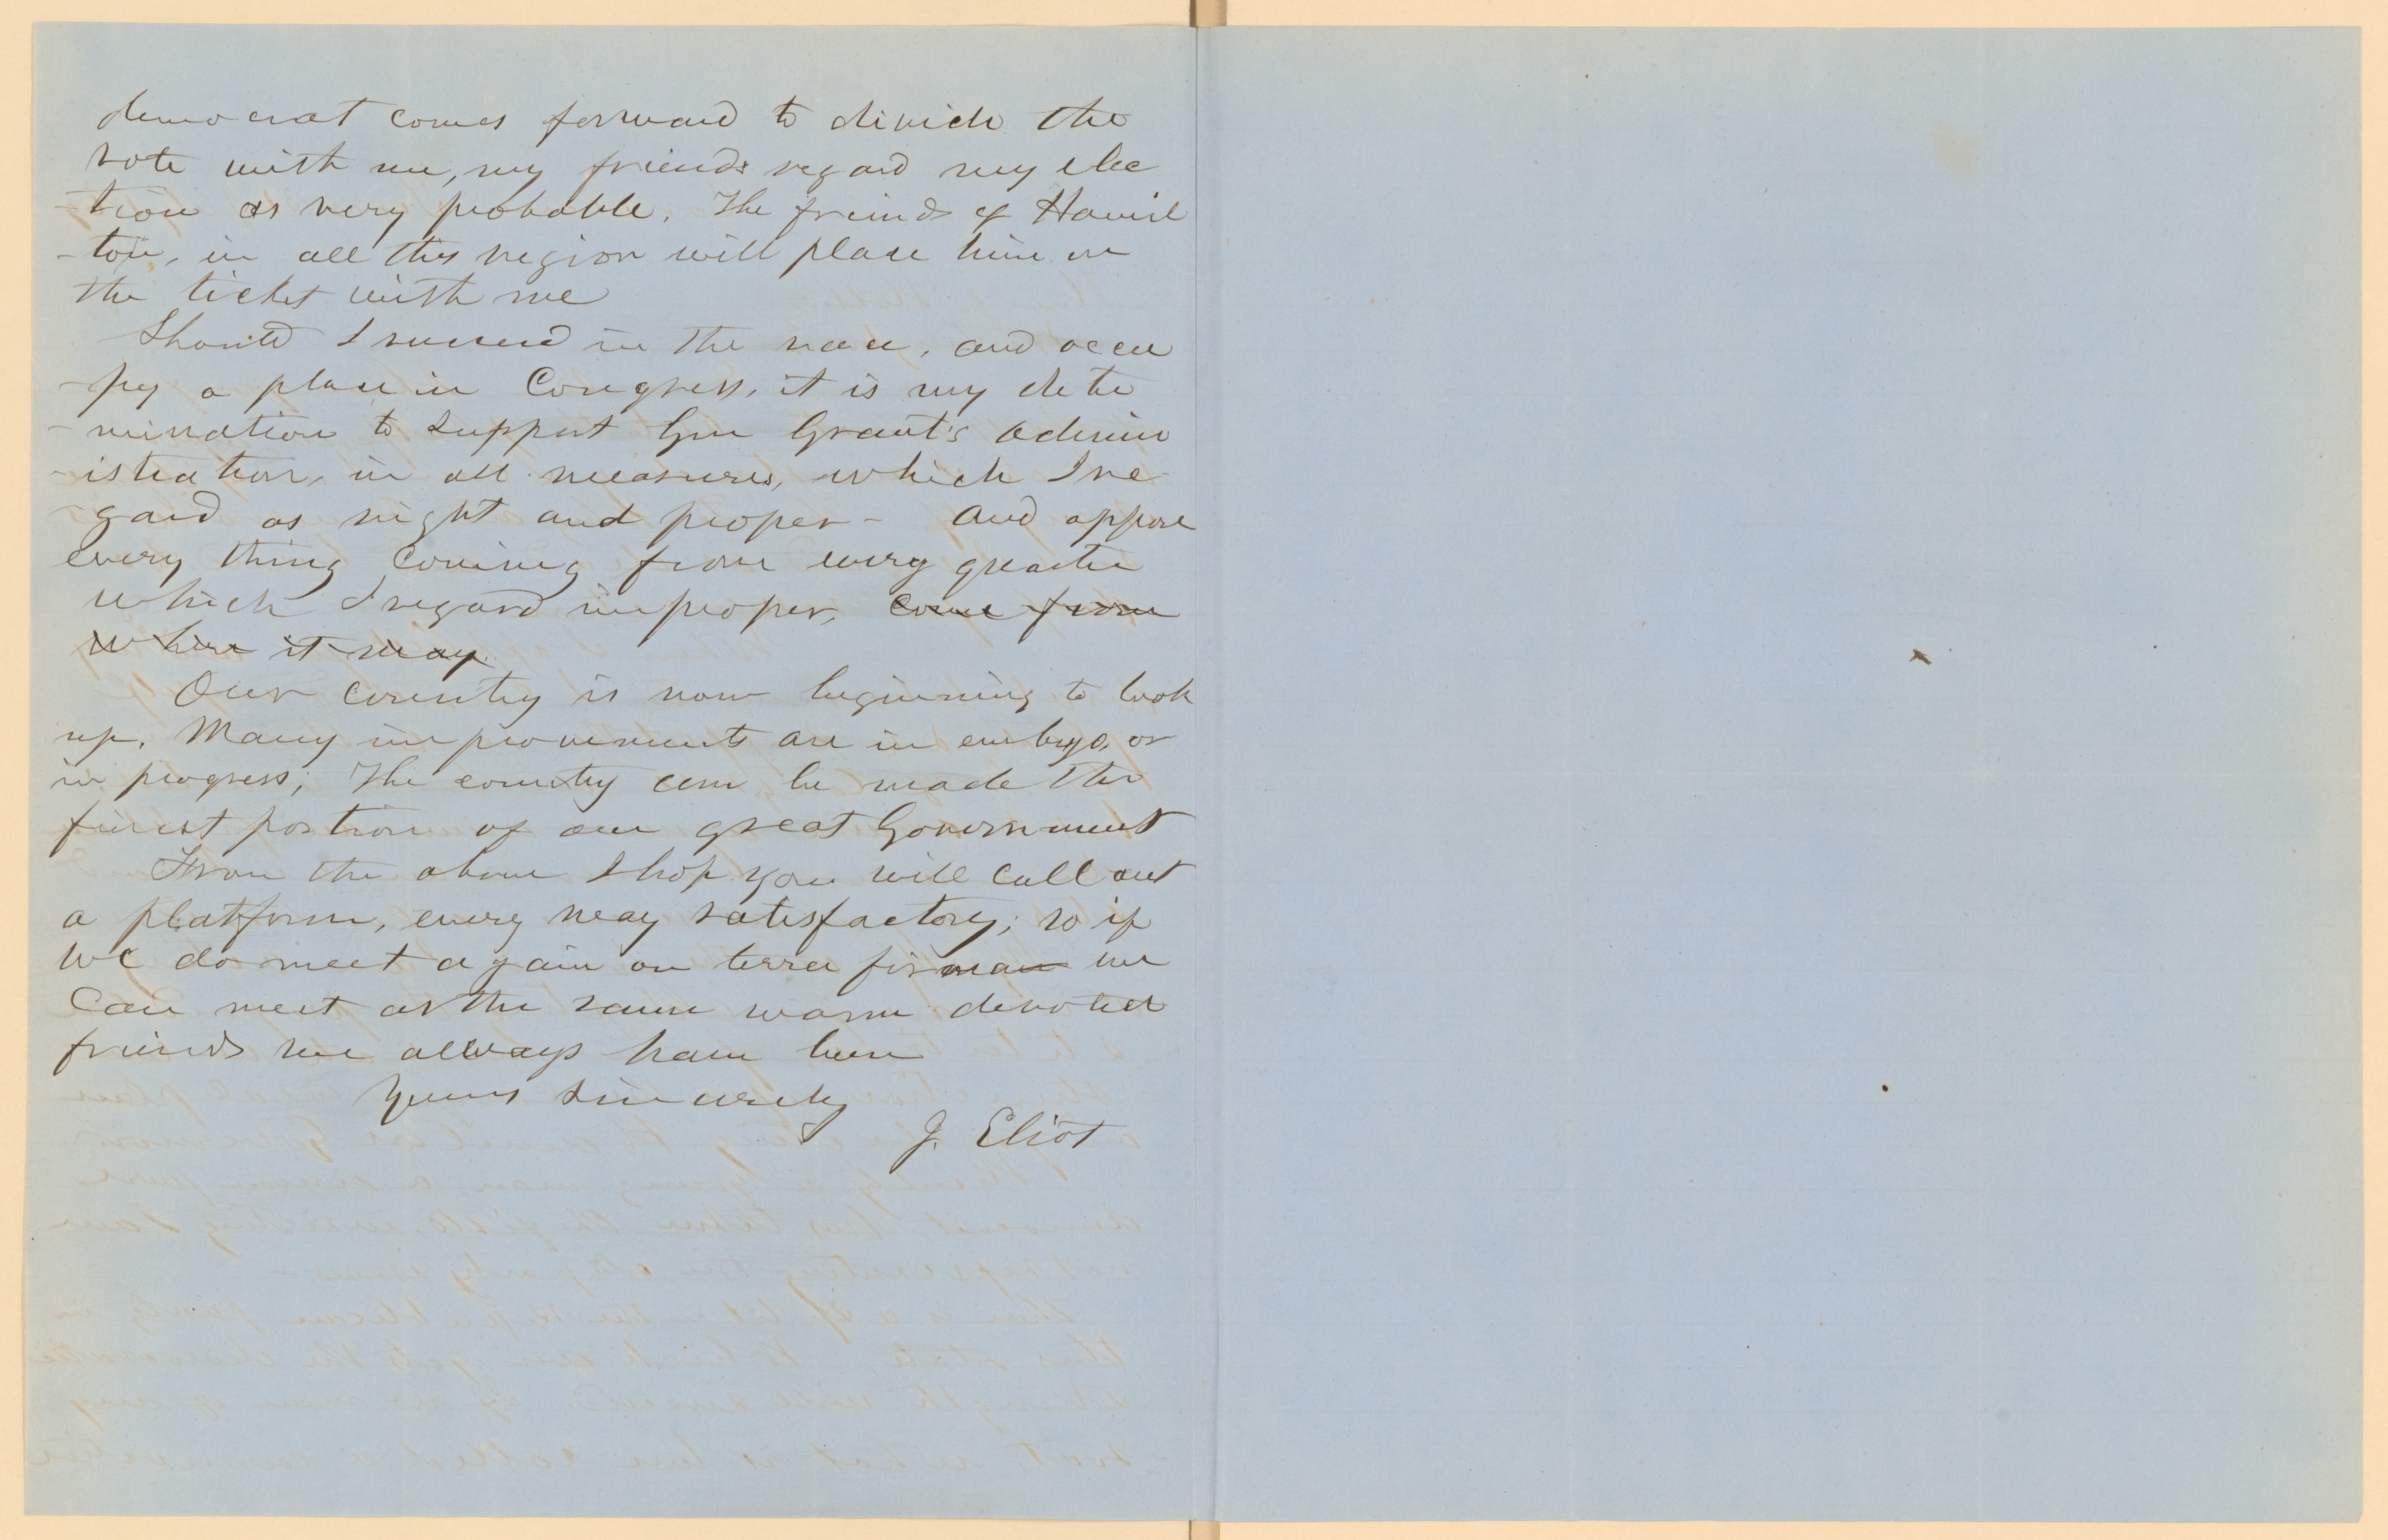 democrat comes forward to divide the
vote with me, my friends regard my elec
-tion as very probable. The friends of Hamil
-ton, in all this region will place him on
the ticket with me
Should I succeed in the race, and occu
-py a place in Congress, it is my dete
-mination to support Gen Grant's admin
-istration, in all measures, which I re-
-gard as right and proper - and oppose
every thing coming from every quarter
which I regard improper, come from
where it may.
Our country is now beginning to look
up. Many improvements are in embryo, or
in progress; The country can be made the
finest portion of our great Government
From the above I hope you will cull out
a platform, every way satisfactory; so if
we do meet again on terra firman we
can meet as the same warm devoted
friends we allways have been
Yours sincerely
J. Eliot